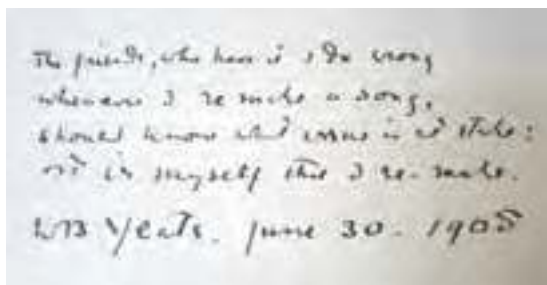 The friends, who have it I do wrong
whenever I remake a song,
should know what issue is at stake:
it is myself that I re-make.
WB Yeats. June 30. 1908